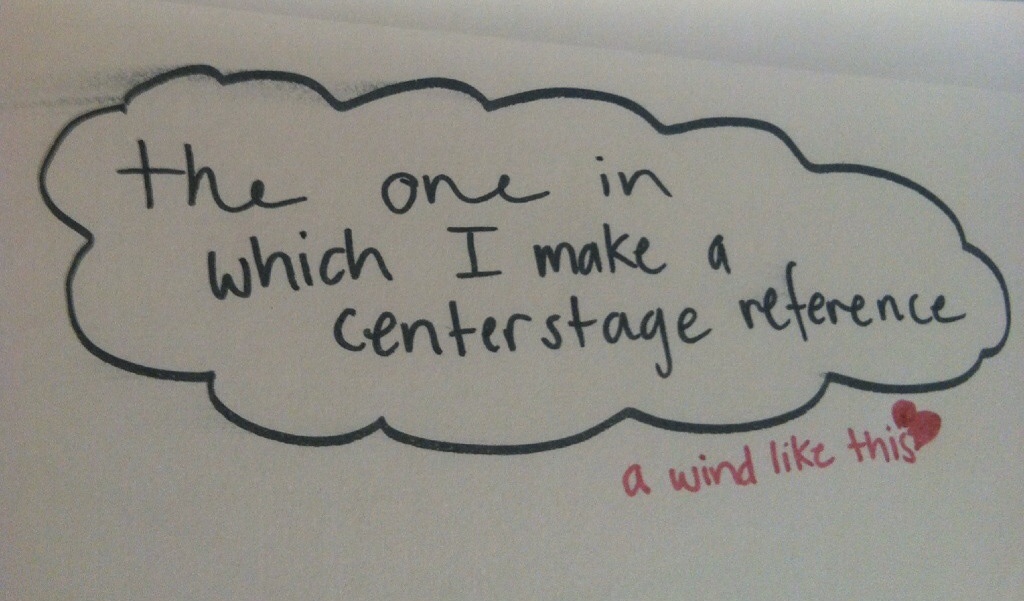 the one in
which I make a
centerstage reference
a wind like this